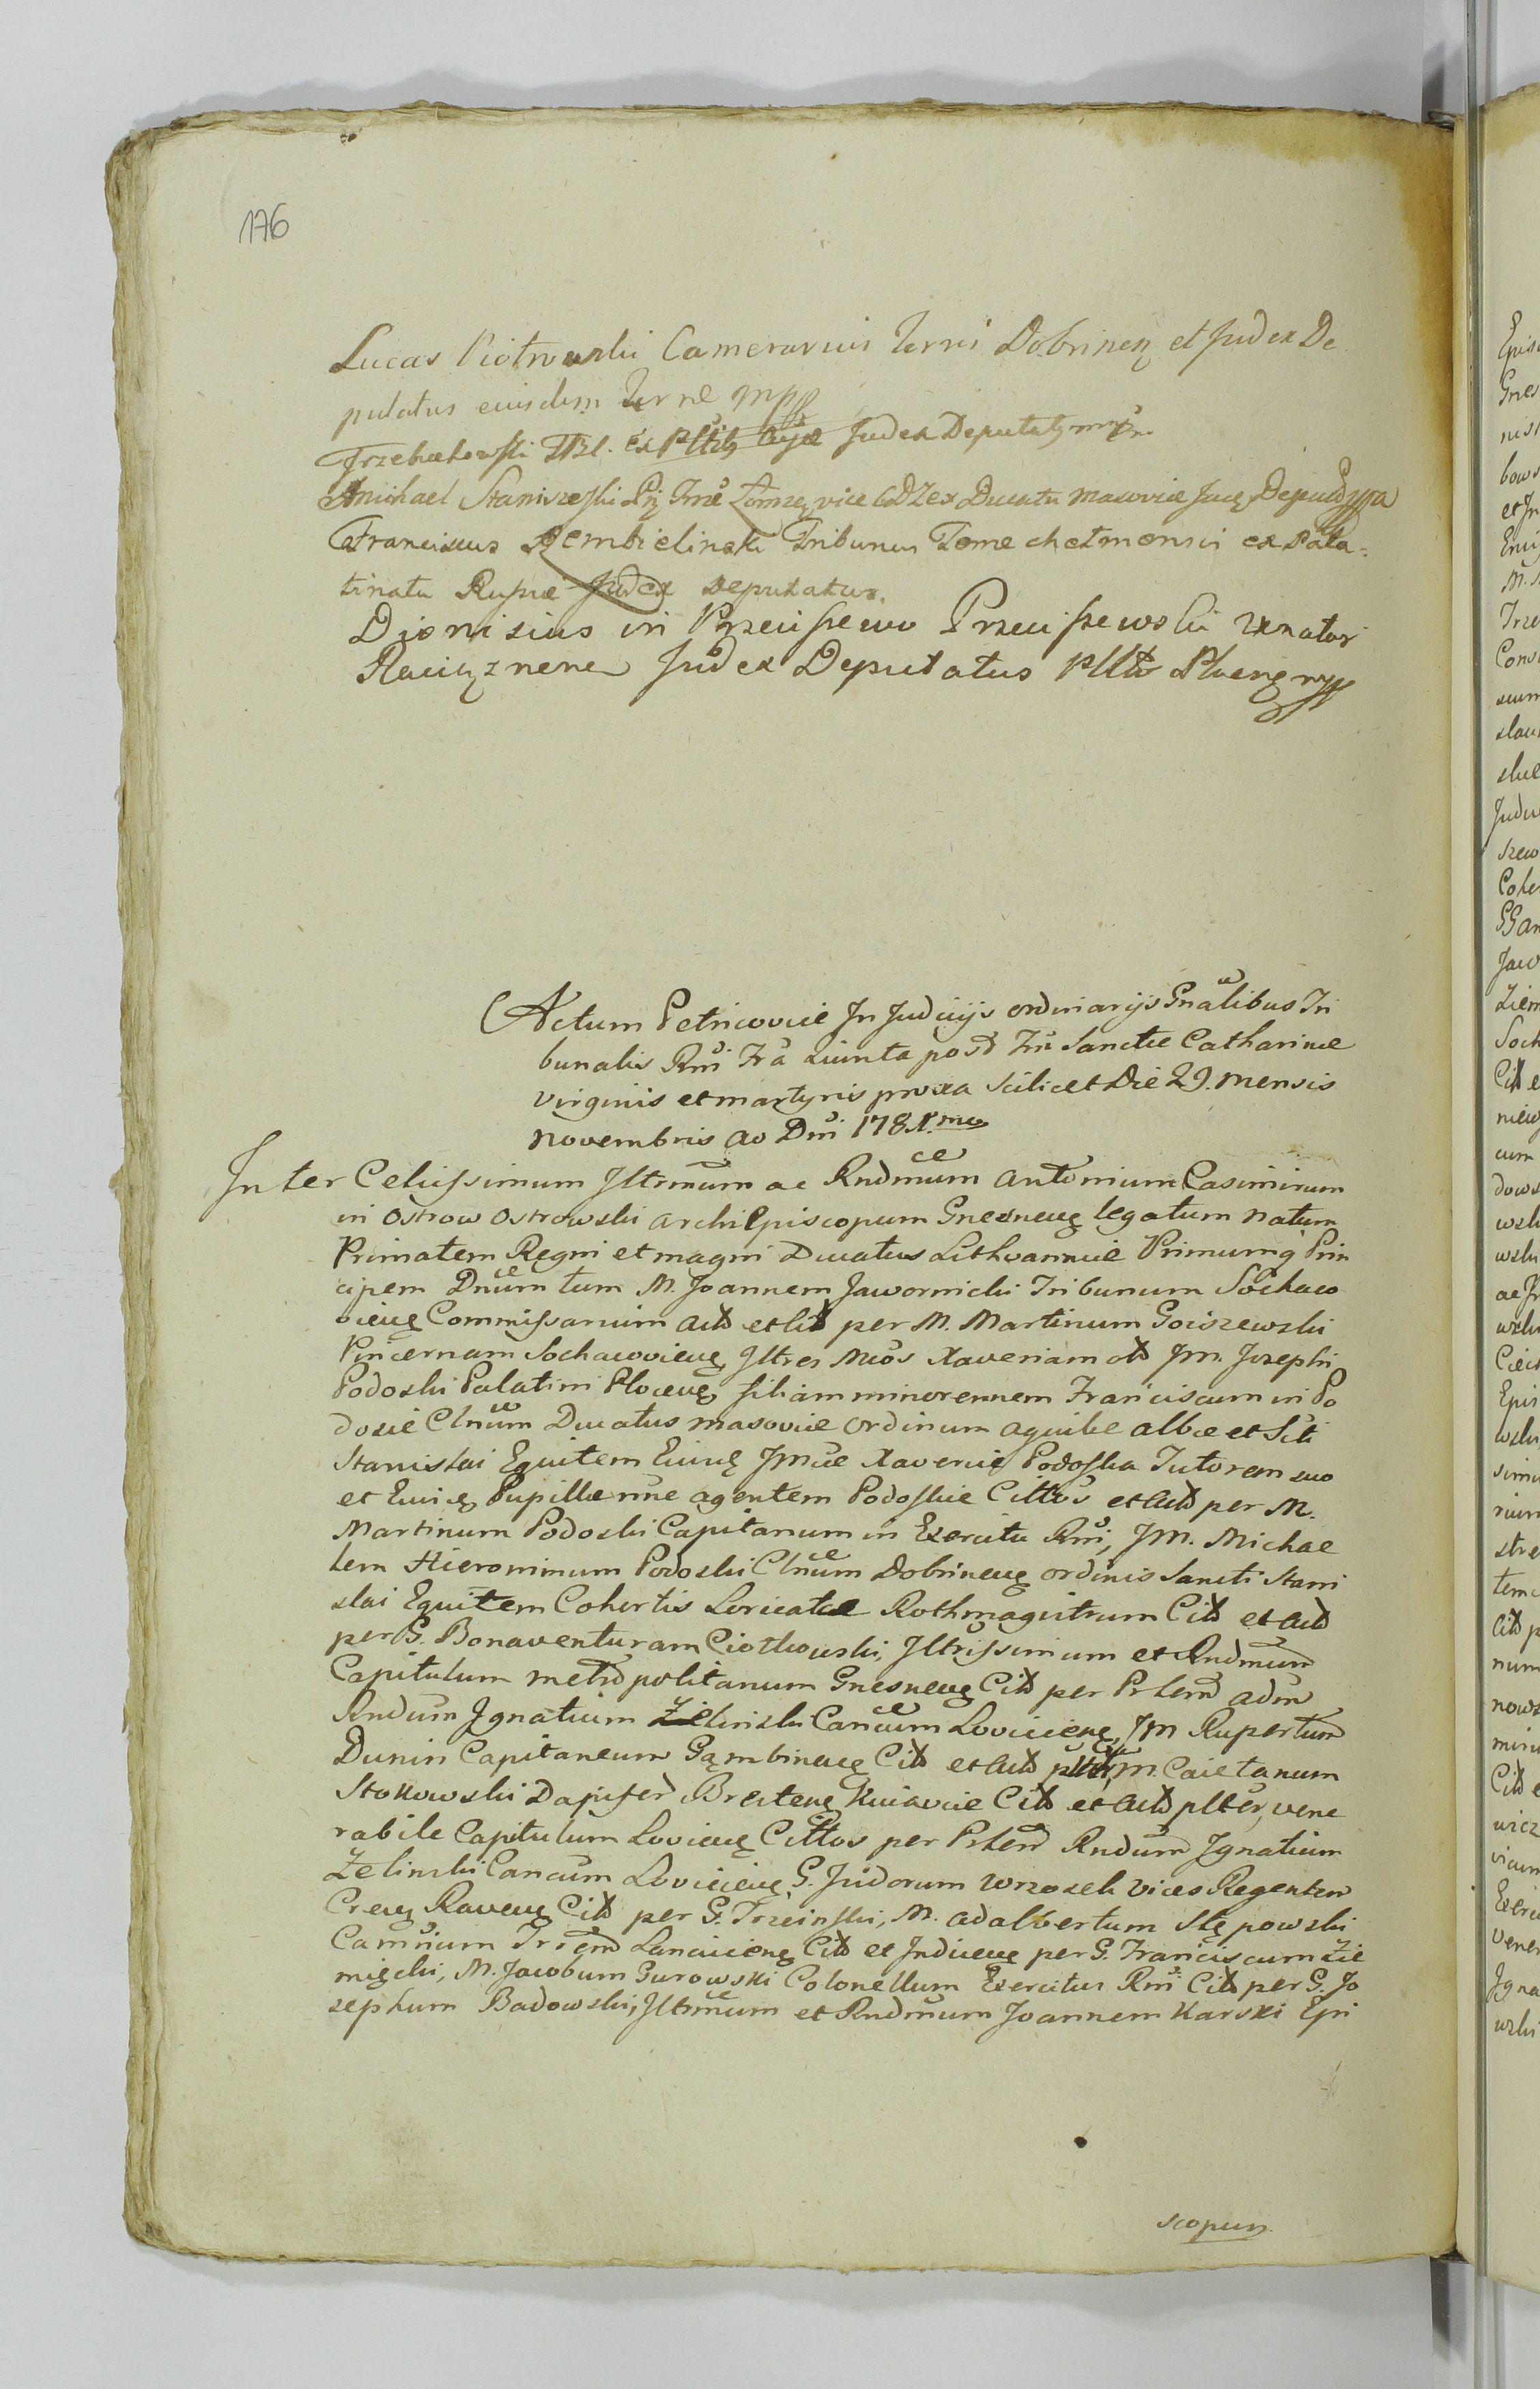 176
Lucas Piotrowski Camerarius Terræ Dobrinen et Judex De
putatus eiusdem Terræ mpp
Trzebuchowski Judex Deputat mp.
Michael Staniszeski Łomzen vice Ducatu Masoviæ Judex Deput
Franciscus Rembielinski Tribunus Terræ chełmensis ex Pala=
tinatu Russiæ Judex Deputatus.
Dionisius in Przeciszewo Przeciszewski Venator
Raciąznen Judex Deputatus Plltus Plocen mpp
Actum Petricoviæ In Judicijs ordinarijs Gnalibus Tri
bunalis Rni Fra quinta post Fm Sanctæ Catharinæ
virginis et martyris proxa scilicet Die 29. mensis
novembris ao Dni 1781.mo
Inter Celsissimum Illrmum ac Rndmum Antonium Casimirum
in Ostrow Ostrowski archiEpiscopum Gnesnen legatum natum
Primatem Regni et magni Ducatus Lithvanniæ Primumq Prin
cipem Dnum tum M. Joannem Jawornicki Tribunum Sochaco
vien Commissarium actt et citt per M. Martinum Gociszewski
Pincernam Sochacovien, Illres Mcos Xaveriam ott Jm. Josephi
Podoski Palatini Plocen filiam minorennem Franciscum in Po
dosie Clnum Ducatus masoviæ Ordinum aquilæ albæ et Sti
Stanislai Equitem Eiusq Jmcæ Xaveriæ Podoska Tutorem suo
et Eius Pupillæ nne agentem Podoskie Cittos et actt per M.
Martinum Podoski Capitanum in Exercitu Rni, JM. Michae
lem Hieronimum Podoski Clnum Dobrinen ordinis Sancti Stani
slai Equitem Cohortis Loricatæ Rothmagistrum Citt et actt
per G. Bonaventuram Ciotkowski, Illrissimum et Rndmum
Capitulum metropolitanum Gnesnen Citt per Prlem adm
Rndum Ignatium Zelinski Cancum Lovicien, Jm Rupertum
Dunin Capitaneum Gąmbinen Citt et actt plter, M. Caietanum
Stokowski Dapifer Bresten Kuiaviæ Citt et actt plter, vene
rabile Capitulum Lovicien Cittos per Prlem Rndum Ignatium
Zelinski Cancum Lovicien, G. Isidorum Wrzosek Vices Regentem
Cren Raven Citt per G. Trzcinski, M. adalbertum Stępowski
Camrium Lancicien Citt et Inducen per G. Franciscum Zie
mięcki, M. Jacobum Gurowski Colonellum Exercitus Rni Citt per G. Jo
sephum Badowski, Illrmum et Rndmum Joannem Karski Epi
scopum